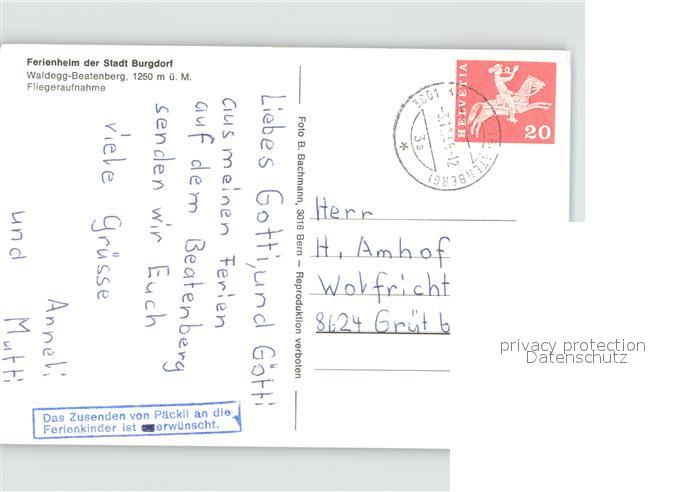 Ferienheim der Stadt Burgdorf
Waldegg-Beatenberg, 1250 m ü. M.
Fliegeraufnahme
Liebes Gotti, und Götti
aus meinen Ferien
auf dem Beatenberg
senden wir Euch
viele Grüsse
Anneli
und Mutti
Das Zusenden von Päckli an die
Ferienkinder ist erwünscht.
Foto B. Bachmann, 3018 Bern – Reproduktion verboten
HELVETIA
20
3a
Herr
H. Amhof
Wolfricht
8624 Grüt b
privacy protection
Datenschutz